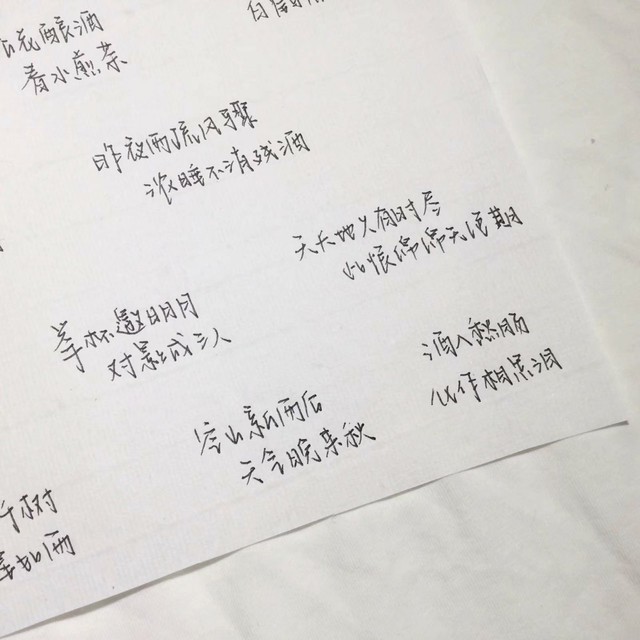 花酿酒
春水煎茶
昨夜雨疏风骤
浓睡不消残酒
天长地久有时尽
此恨绵绵无绝期
举杯邀明月
对影成三人
酒入愁肠
化作相思泪
空山新雨后
天气晚来秋
千树
星如雨